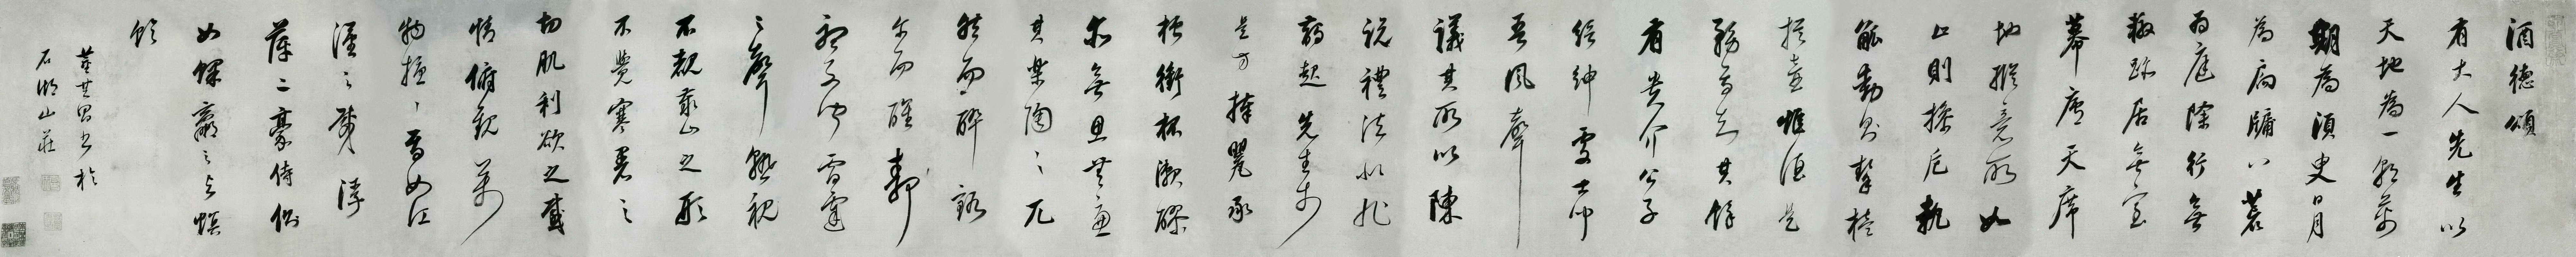 酒德頌
有大人先生以
天地為一朝萬
期為須臾日月
為扃牖八荒
為庭除行無
轍跡居無室
幕席天席
地縱意所如
止則操卮執
觚動則挈榼
提壺唯酒是
務焉知其餘
有貴介公子
縉紳處士聞
吾風聲
議其所以陳
說禮法是非
鋒起先生於
是方捧甖承
槽銜杯漱醪
無思無慮
其樂陶〻兀
然而醉豁
爾而醒靜
聽不聞雷霆
之聲熟視
不覩泰山之形
不覺寒暑之
切肌利欲之感
情俯觀萬
物擾〻焉如江
漢之載浮
萍二豪侍側
如蜾蠃之與螟
蛉
董其昌書於
石湖山莊